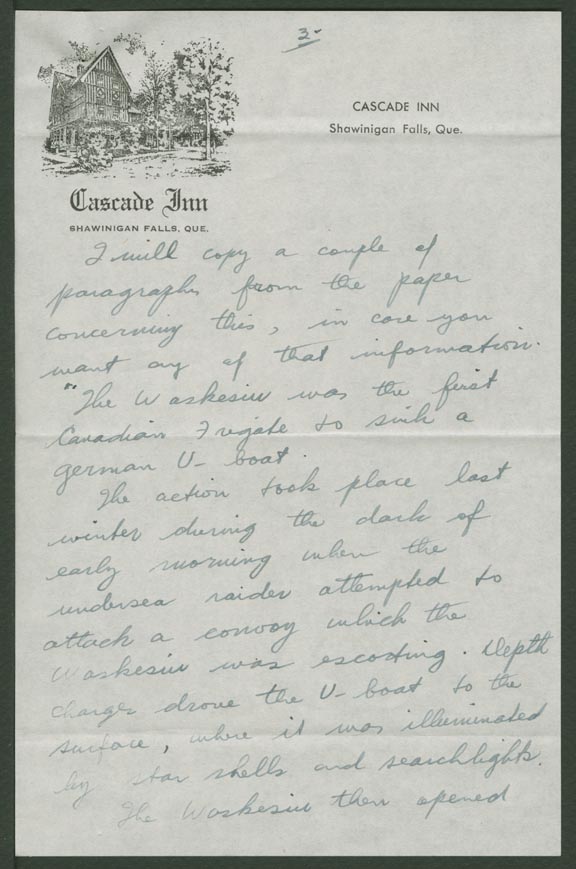 3-
CASCADE INN
Shawinigan Falls, Que.
Cascade Inn
SHAWINIGAN FALLS, QUE.
I will copy a couple of
paragraphs from the paper
concerning this, in case you
want any of that information.
"The Waskesiu was the first
Canadian Frigate to sink a
german U-boat.
The action took place last
winter during the dark of
early morning when the
undersea raider attempted to
attack a convoy which the
Waskesiu was escorting. Depth
charges drove the U-boat to the
surface, where it was illuminated
by star shells and searchlights.
The Waskesiu then opened